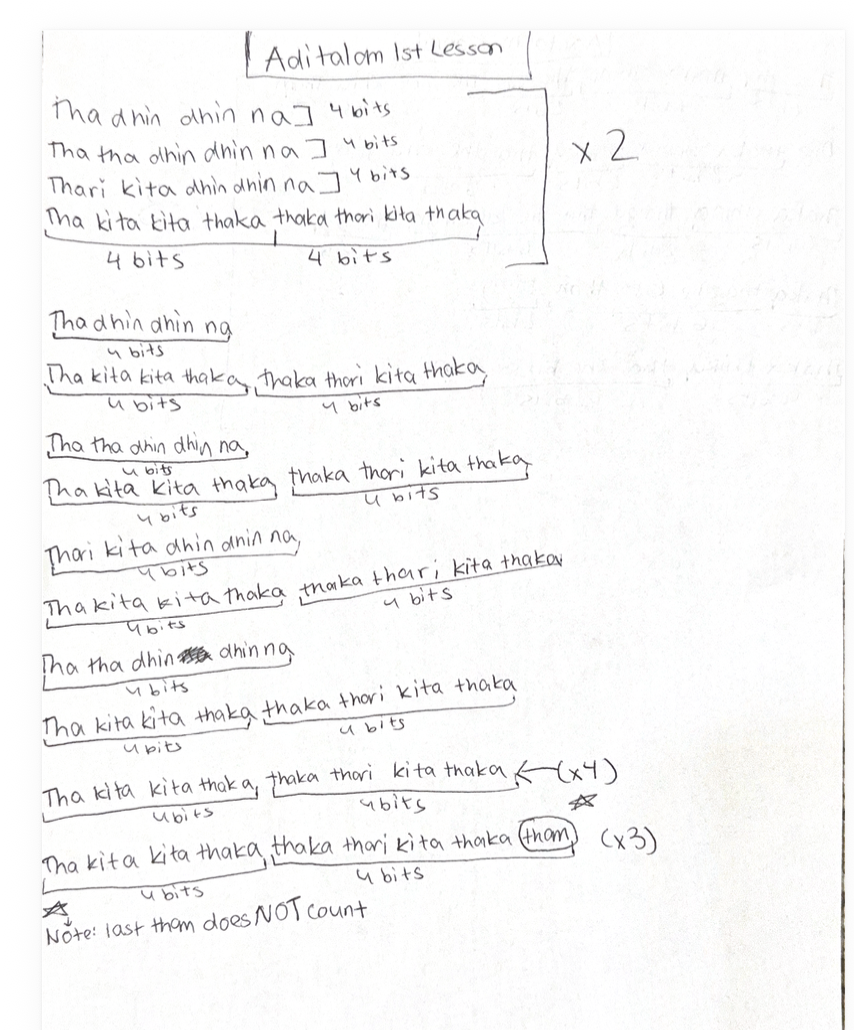 Aditalam 1st Lesson
Tha dhin dhin na] 4 bits
Tha tha dhin dhin na] 4 bits
Thari kita dhin dhin na] 4 bits
Tha kita kita thaka, thaka thari kita thaka,
4 bits 4 bits
x 2
Tha dhin dhin na
4 bits
Tha kita kita thaka, thaka thari kita thaka,
4 bits 4 bits
Tha tha dhin dhin na,
4 bits
Tha kita kita thaka, thaka thari kita thaka,
4 bits 4 bits
Thari kita dhin dhin na,
4 bits
Tha kita kita thaka, thaka thari kita thaka
4 bits 4 bits
Tha tha dhin dhin na,
4 bits
Tha kita kita thaka, thaka thari kita thaka,
4 bits 4 bits
Tha kita kita thaka, thaka thari kita thaka ← (x4)
4 bits 4 bits
Tha kita kita thaka, thaka thari kita thaka tham (x3)
4 bits 4 bits
Note: last tham does NOT count